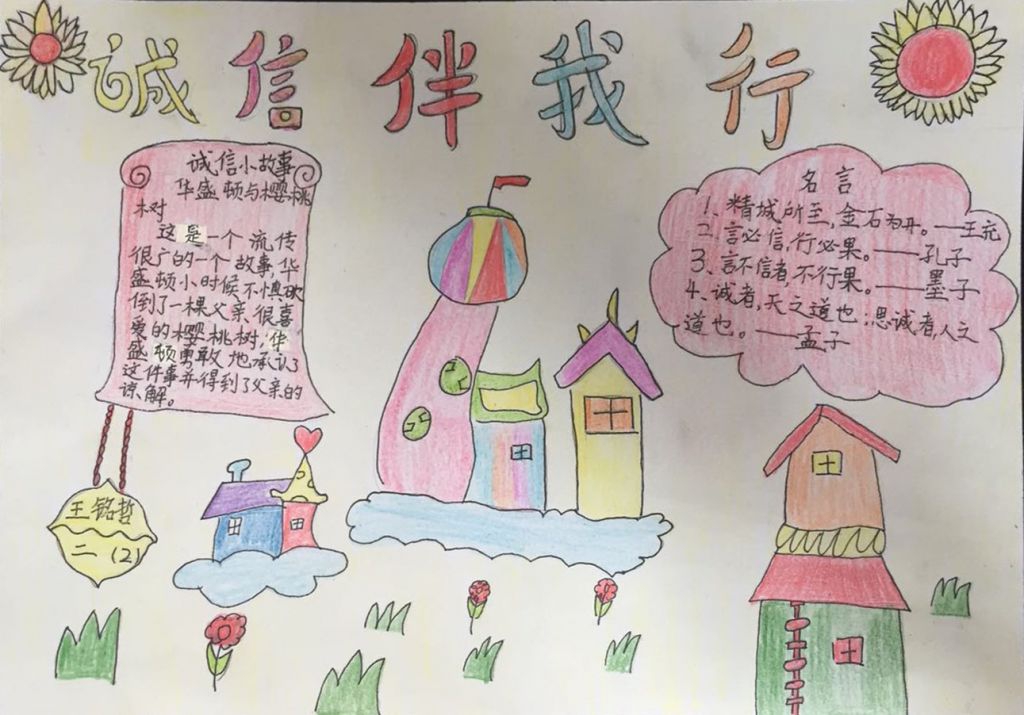 诚信伴我行
诚信小故事
华盛顿与樱桃
树
这是一个流传
很广的一个故事,华
盛顿小时候,不慎砍
倒了一棵父亲很喜
爱的樱桃树,华
盛顿勇敢地承认了
这件事并得到了父亲的
谅解。
名言
1、精城所至,金石为开。——王充
二、言必信,行必果。——孔子
3、言不信者,不行果。——墨子
4、诚者,天之道也;思诚者,人之
道也。——孟子
王铭哲
二(2)